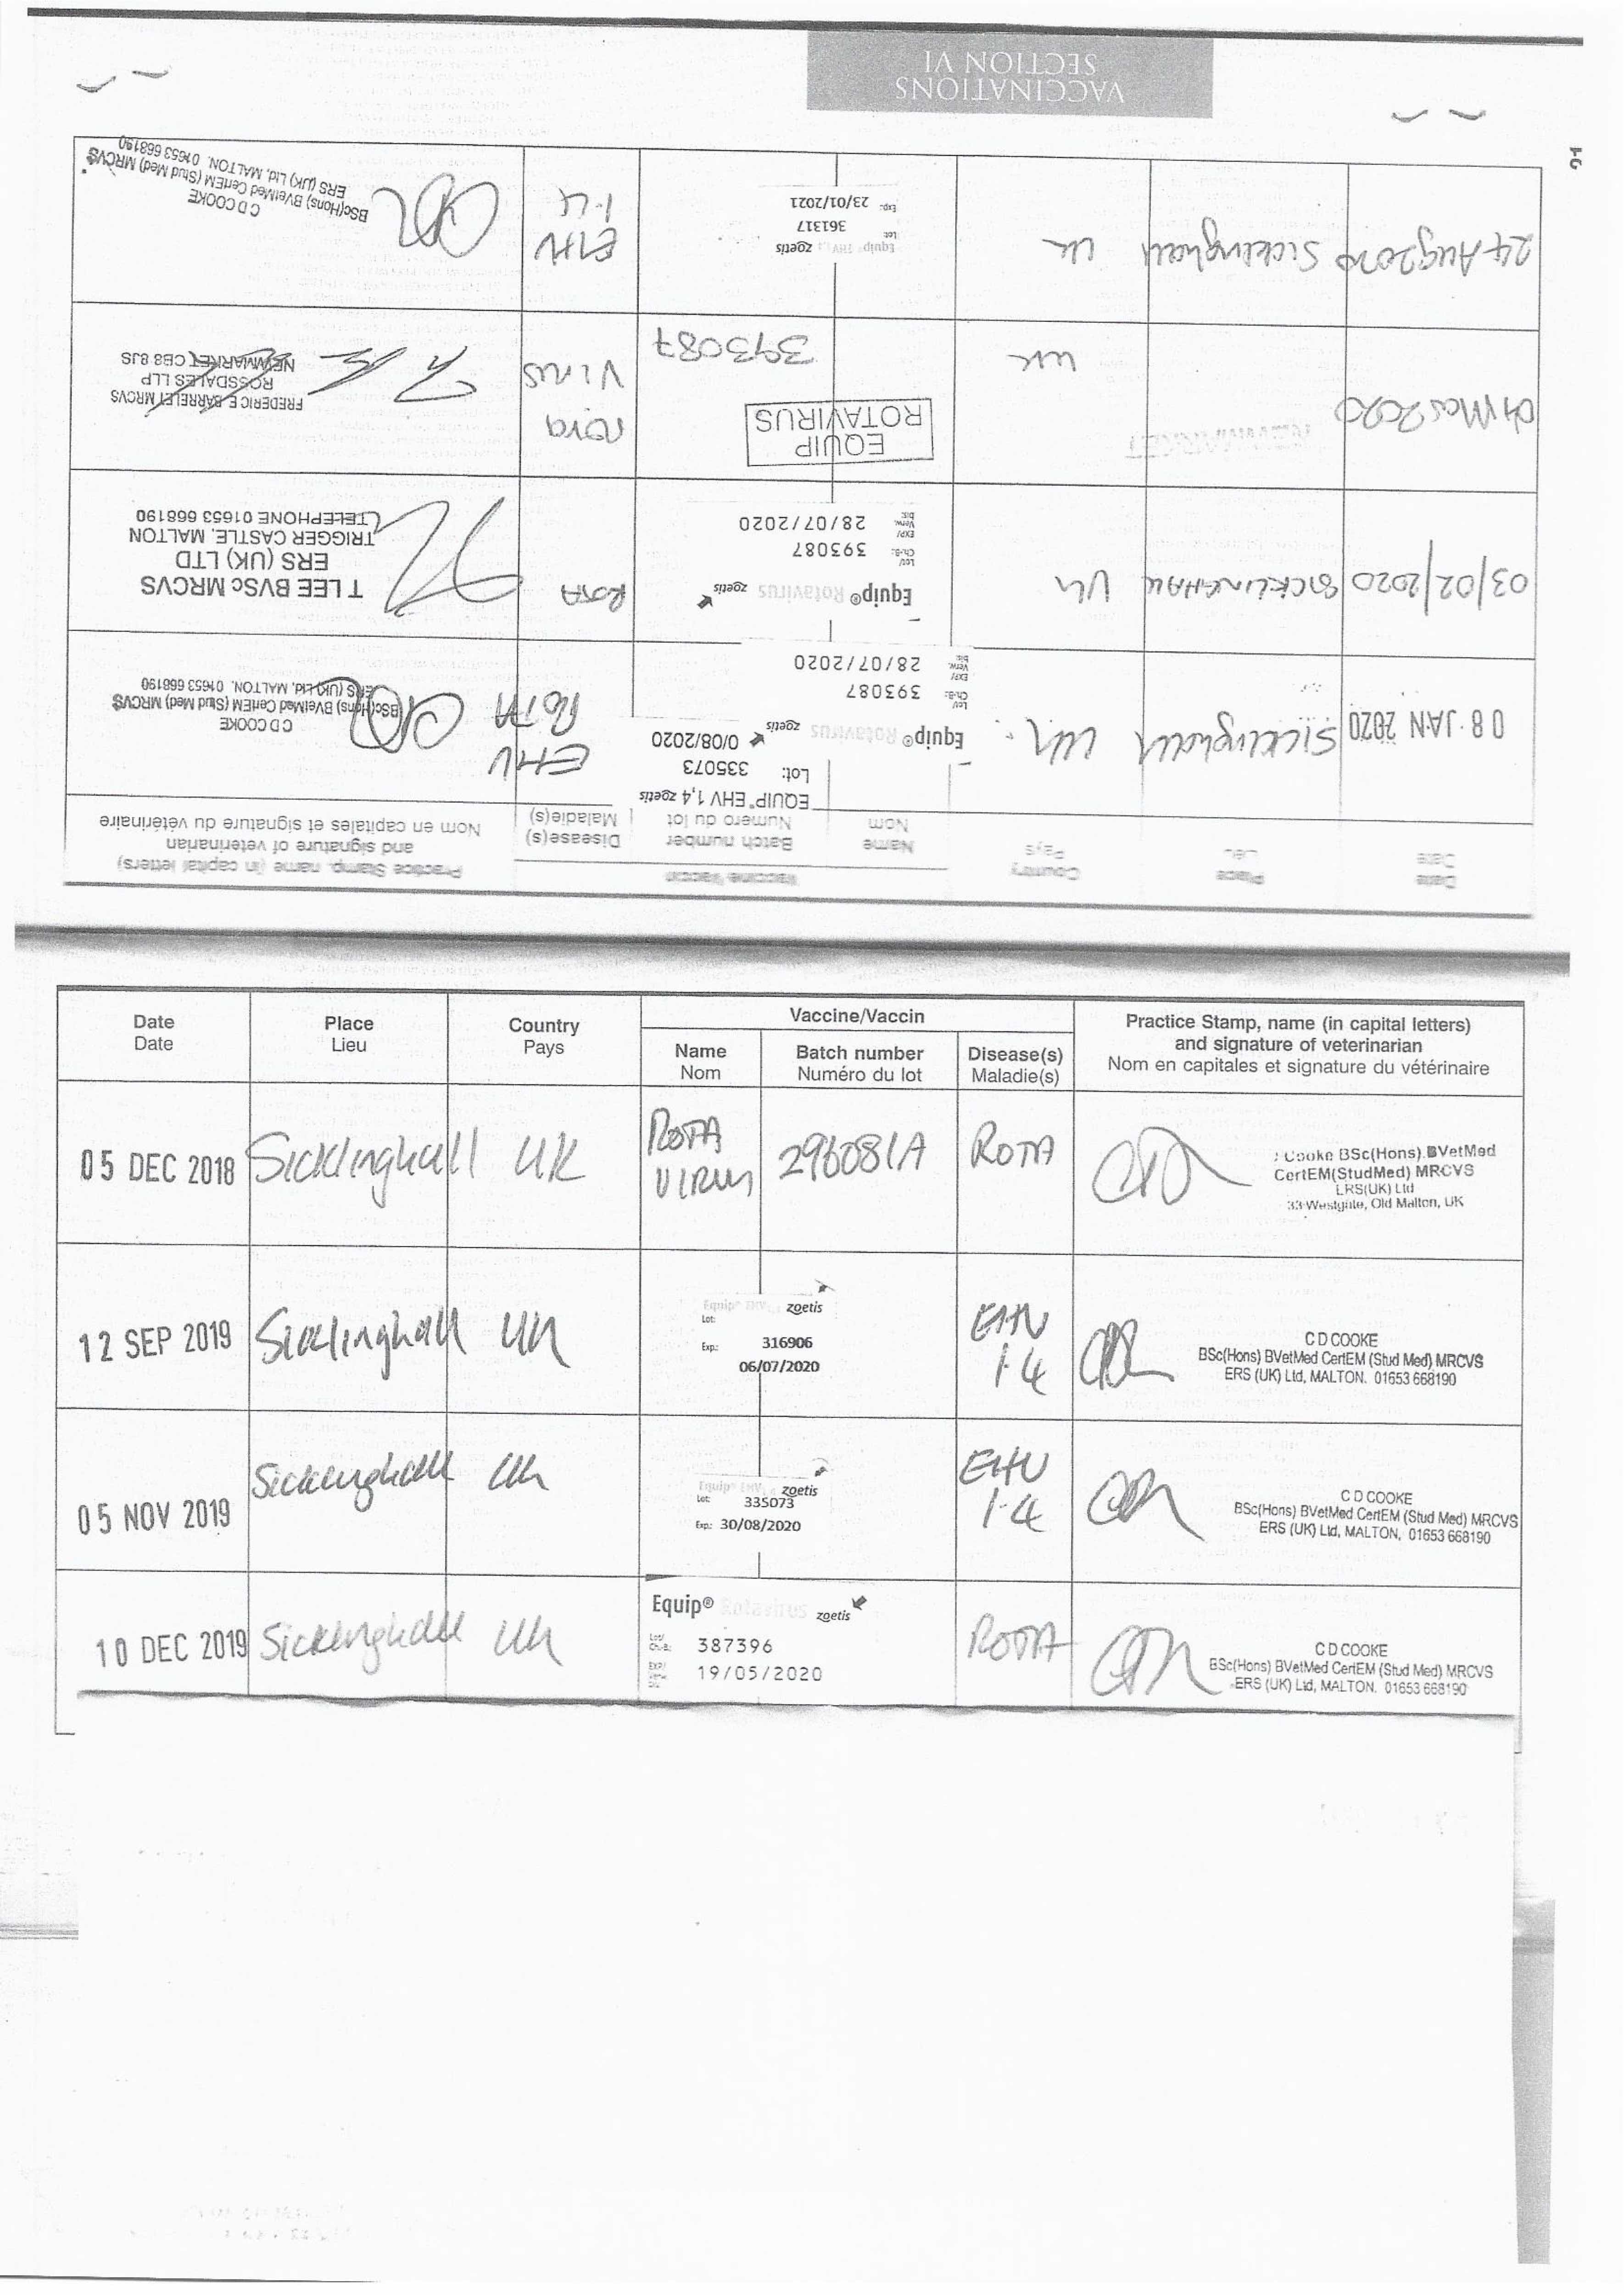 VACCINATIONS
SECTION VI
21
Date
Date
Place
Lieu
Country
Pays
Vaccine/Vaccin
Name
Nom
Batch number
Numéro du lot
Disease(s)
Maladie(s)
Practice Stamp, name (in capital letters)
and signature of veterinarian
Nom en capitales et signature du vétérinaire
08 JAN 2020 Sicklinghall UK
EQUIP® EHV 1,4 zoetis
Lot: 335073
0/08/2020
Equip® Rotavirus zoetis
Lot/
Ch.-B.: 393087
EXP/
Verw.
bis: 28/07/2020
EHV
ROTA
C D COOKE
BSc(Hons) BVetMed CertEM (Stud Med) MRCVS
ERS (UK) Ltd, MALTON. 01653 668190
03/02/2020 SICKLINGHALL UK
Equip® Rotavirus zoetis
Lot/
Ch.-B.: 393087
EXP/
Verw.
bis: 28/07/2020
ROTA
T LEE BVSc MRCVS
ERS (UK) LTD
TRIGGER CASTLE, MALTON
TELEPHONE 01653 668190
04 Mar 2020
NEWMARKET
UK
EQUIP
ROTAVIRUS
393087
rota
Virus
FREDERIC E BARRELET MRCVS
ROSSDALES LLP
NEWMARKET CB8 8JS
24 Aug 2020 Sicklinghall UK
Equip® EHV 1,4 zoetis
Lot: 361317
Exp: 23/01/2021
EHV
1·4
C D COOKE
BSc(Hons) BVetMed CertEM (Stud Med) MRCVS
ERS (UK) Ltd, MALTON. 01653 668190
Date
Date
Place
Lieu
Country
Pays
Vaccine/Vaccin
Name
Nom
Batch number
Numéro du lot
Disease(s)
Maladie(s)
Practice Stamp, name (in capital letters)
and signature of veterinarian
Nom en capitales et signature du vétérinaire
05 DEC 2018 Sicklinghall UK
ROTA
VIRUS
296081A
ROTA
Cooke BSc(Hons).BVetMed
CertEM(StudMed) MRCVS
ERS(UK) Ltd
33 Westgate, Old Malton, UK
12 SEP 2019 Sicklinghall UK
Equip® EHV 1,4 zoetis
Lot: 316906
Exp.: 06/07/2020
EHV
1·4
C D COOKE
BSc(Hons) BVetMed CertEM (Stud Med) MRCVS
ERS (UK) Ltd, MALTON. 01653 668190
05 NOV 2019 Sicklinghall UK
Equip® EHV 1,4 zoetis
Lot: 335073
Exp.: 30/08/2020
EHV
1·4
C D COOKE
BSc(Hons) BVetMed CertEM (Stud Med) MRCVS
ERS (UK) Ltd, MALTON, 01653 668190
10 DEC 2019 Sicklinghall UK
Equip® Rotavirus zoetis
Lot/
Ch.-B.: 387396
EXP/
19/05/2020
ROTA
C D COOKE
BSc(Hons) BVetMed CertEM (Stud Med) MRCVS
ERS (UK) Ltd, MALTON. 01653 668190